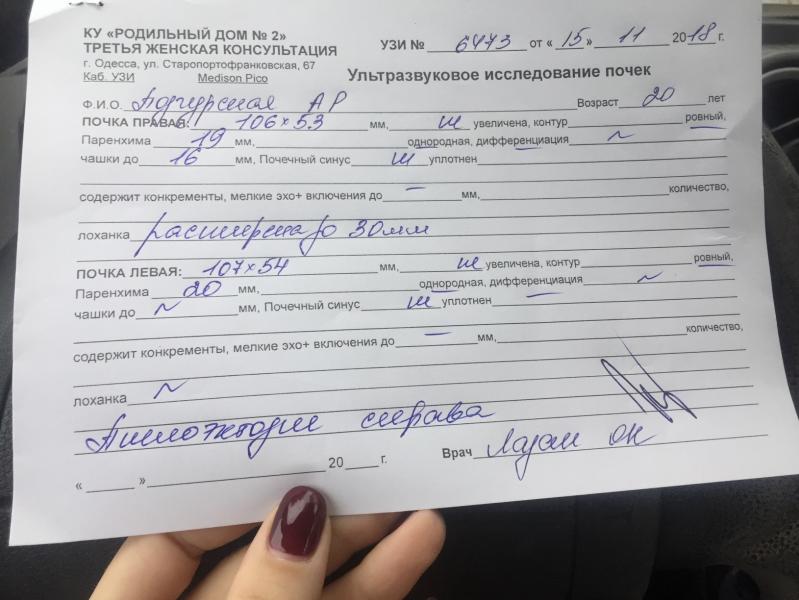 КУ «РОДИЛЬНЫЙ ДОМ № 2»
ТРЕТЬЯ ЖЕНСКАЯ КОНСУЛЬТАЦИЯ
г. Одесса, ул. Старопортофранковская, 67
Каб. УЗИ Medison Pico
УЗИ № 6473 от «15» 11 2018 г.
Ультразвуковое исследование почек
Ф.И.О. АР Возраст 20 лет
ПОЧКА ПРАВАЯ: 106×53 мм, не увеличена, контур ровный,
Паренхима 19 мм, однородная, дифференциация ~
чашки до 16 мм, Почечный синус не уплотнен
содержит конкременты, мелкие эхо+ включения до — мм, количество,
лоханка расширена до 30мм
ПОЧКА ЛЕВАЯ: 107×54 мм, не увеличена, контур ровный,
Паренхима 20 мм, однородная, дифференциация ~
чашки до ~ мм, Почечный синус не уплотнен
содержит конкременты, мелкие эхо+ включения до — мм, количество,
лоханка ~
Пиелоэктазия справа
« » 20 г. Врач